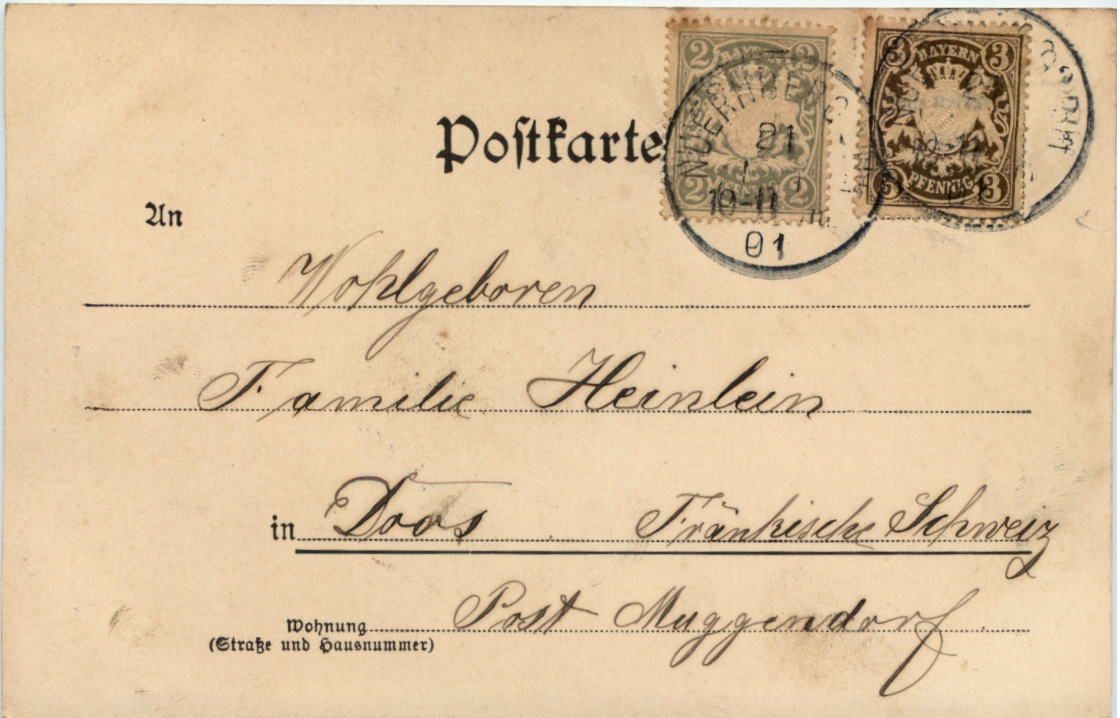 2 2
BAYERN
2 2
3 BAYERN 3
3 PFENNIG 3
NUERNBERG
21
10-11
01
Postkarte
An
Wohlgeboren
Familie Heinlein
in Doos Fränkische Schweiz
Post Muggendorf
Wohnung
(Straße und Hausnummer)